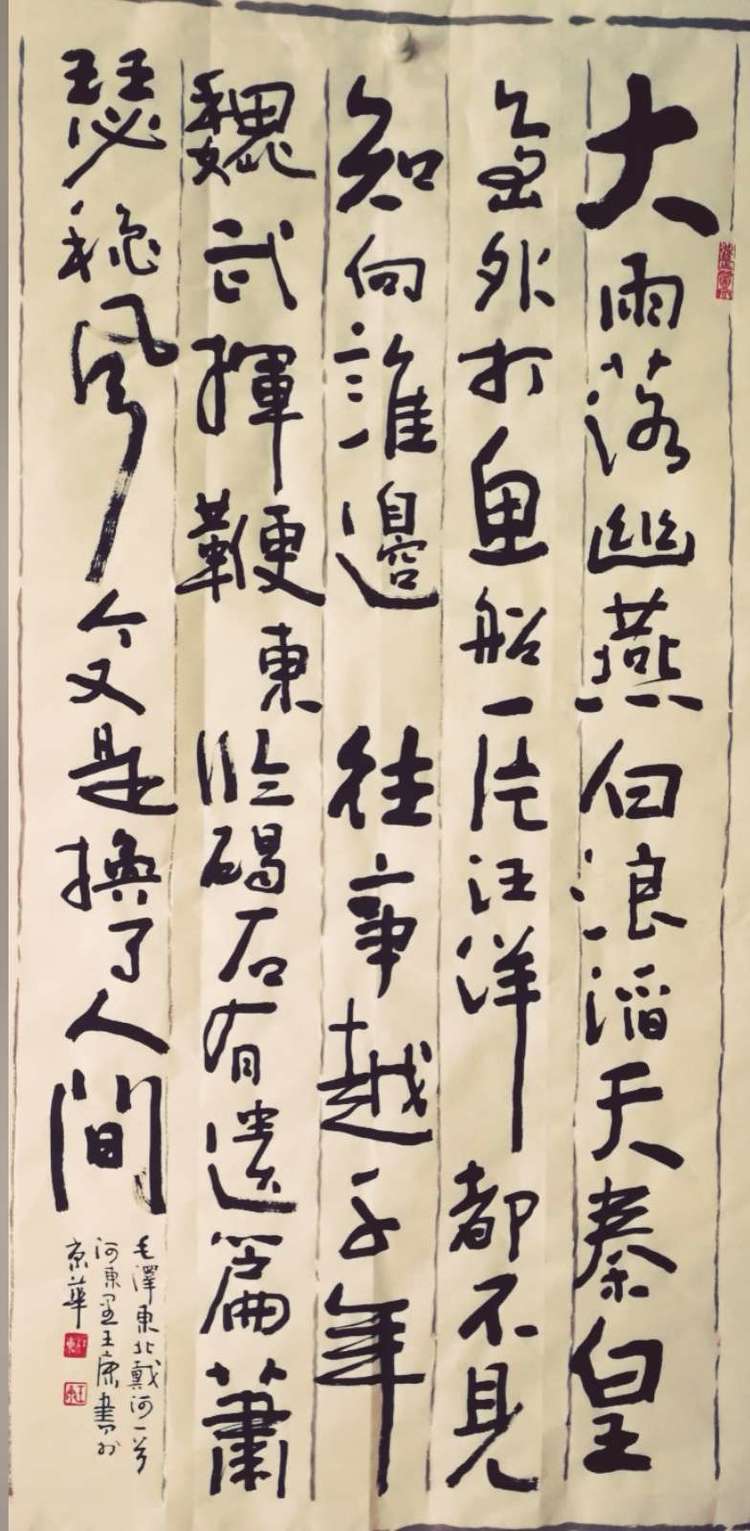 大雨落幽燕白浪滔天秦皇
島外打鱼船一片汪洋都不見
知向誰邊 往事越千年
魏武揮鞭東临碣石有遺篇蕭
瑟秋風今又是換了人間
毛澤東北戴河一首
河東王康書於
京華